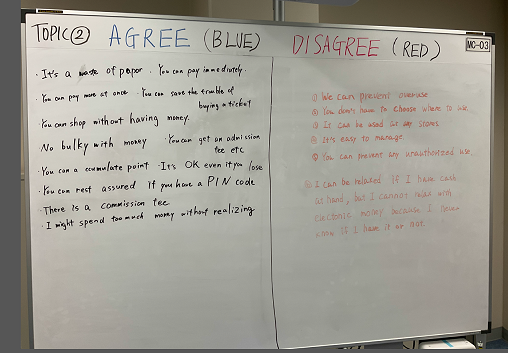 TOPIC② AGREE (BLUE) DISAGREE (RED) MC-03
· It's a waste of paper · You can pay immediately.
· You can pay more at once · You can save the trouble of
buying a ticket
· You can shop without having money.
No bulky with money · You can get an admission
fee etc
· You can accumulate point · It's OK even if you lose
· You can rest assured if you have a PIN code
· There is a commission fee
· I might spend too much money without realizing
① We can prevent overuse
② You don't have to choose where to use.
③ It can be used at any stores
④ It's easy to manage.
⑤ You can prevent any unauthorized use
⑥ I can be relaxed if I have cash
at hand, but I cannot relax with
electronic money because I never
know if I have it or not.